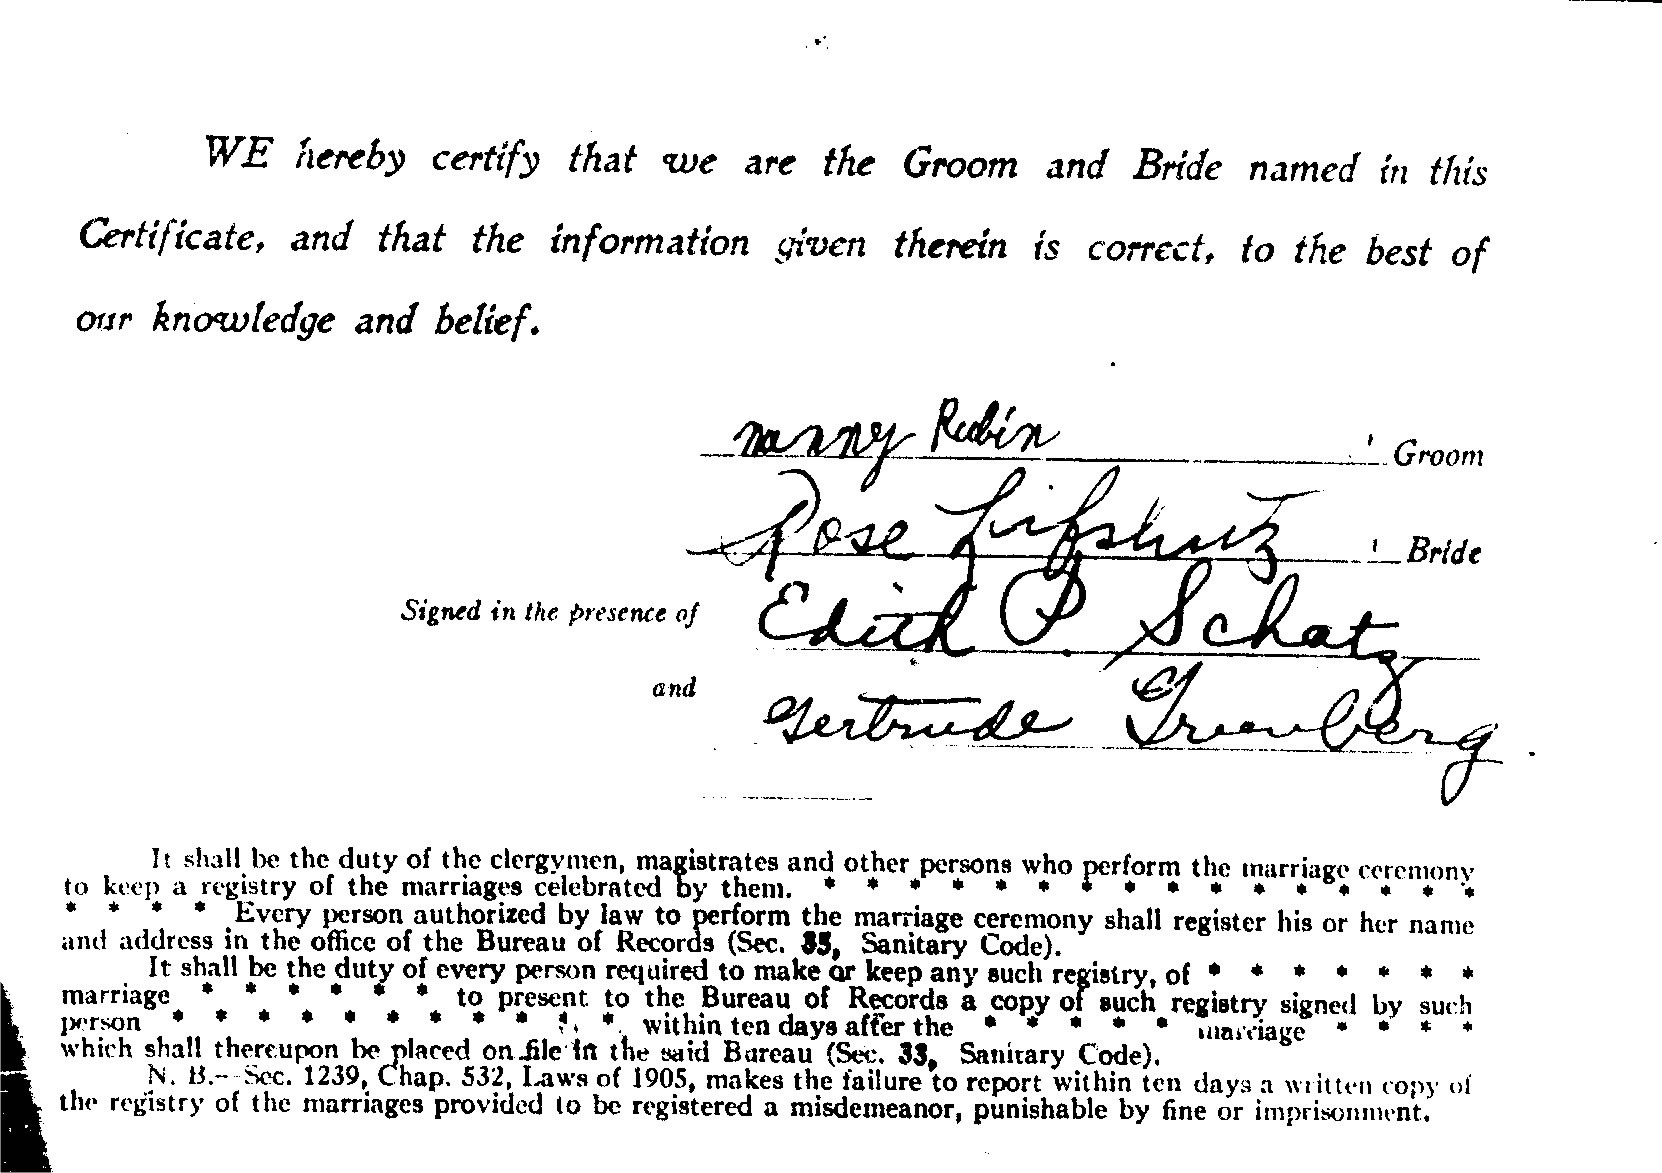 WE hereby certify that we are the Groom and Bride named in this
Certificate, and that the information given therein is correct, to the best of
our knowledge and belief.
Manny Rubin Groom
Rose Lifshutz Bride
Signed in the presence of Edith P. Schatz
and Gertrude Greenberg
It shall be the duty of the clergymen, magistrates and other persons who perform the marriage ceremony
to keep a registry of the marriages celebrated by them. * * * * * * * * * * * * * * * *
* * * * Every person authorized by law to perform the marriage ceremony shall register his or her name
and address in the office of the Bureau of Records (Sec. 35, Sanitary Code).
It shall be the duty of every person required to make or keep any such registry, of * * * * * * *
marriage * * * * * * to present to the Bureau of Records a copy of such registry signed by such
person * * * * * * * * * * * within ten days after the * * * * * marriage * * * *
which shall thereupon be placed on file in the said Bureau (Sec. 33, Sanitary Code).
N. B.--Sec. 1239, Chap. 532, Laws of 1905, makes the failure to report within ten days a written copy of
the registry of the marriages provided to be registered a misdemeanor, punishable by fine or imprisonment.